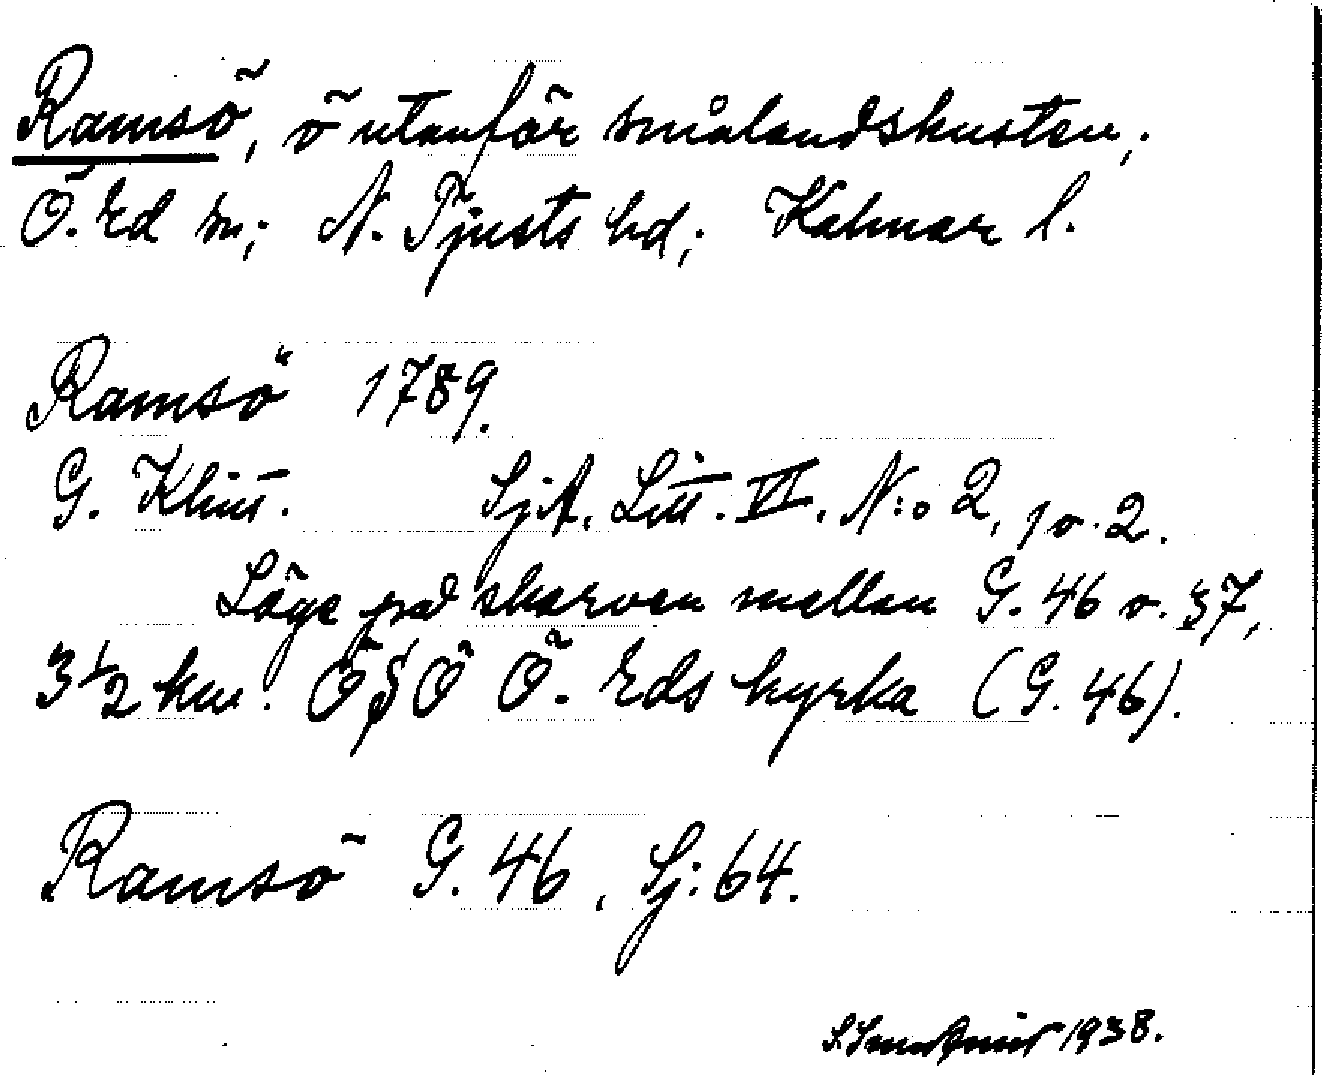 Ramsö, ö utanför smålandskusten;
Ö. Ed sn; N. Tjusts hd; Kalmar l.
Ramsö 1789.
G. Klint. SjA. Litt. VI. N:o 2, 1 o. 2.
Läge på skarven mellan G. 46 o. 37,
3 1/2 km. ÖSÖ Ö. Eds kyrka (G. 46).
Ramsö G. 46, Sj: 64.
1938.